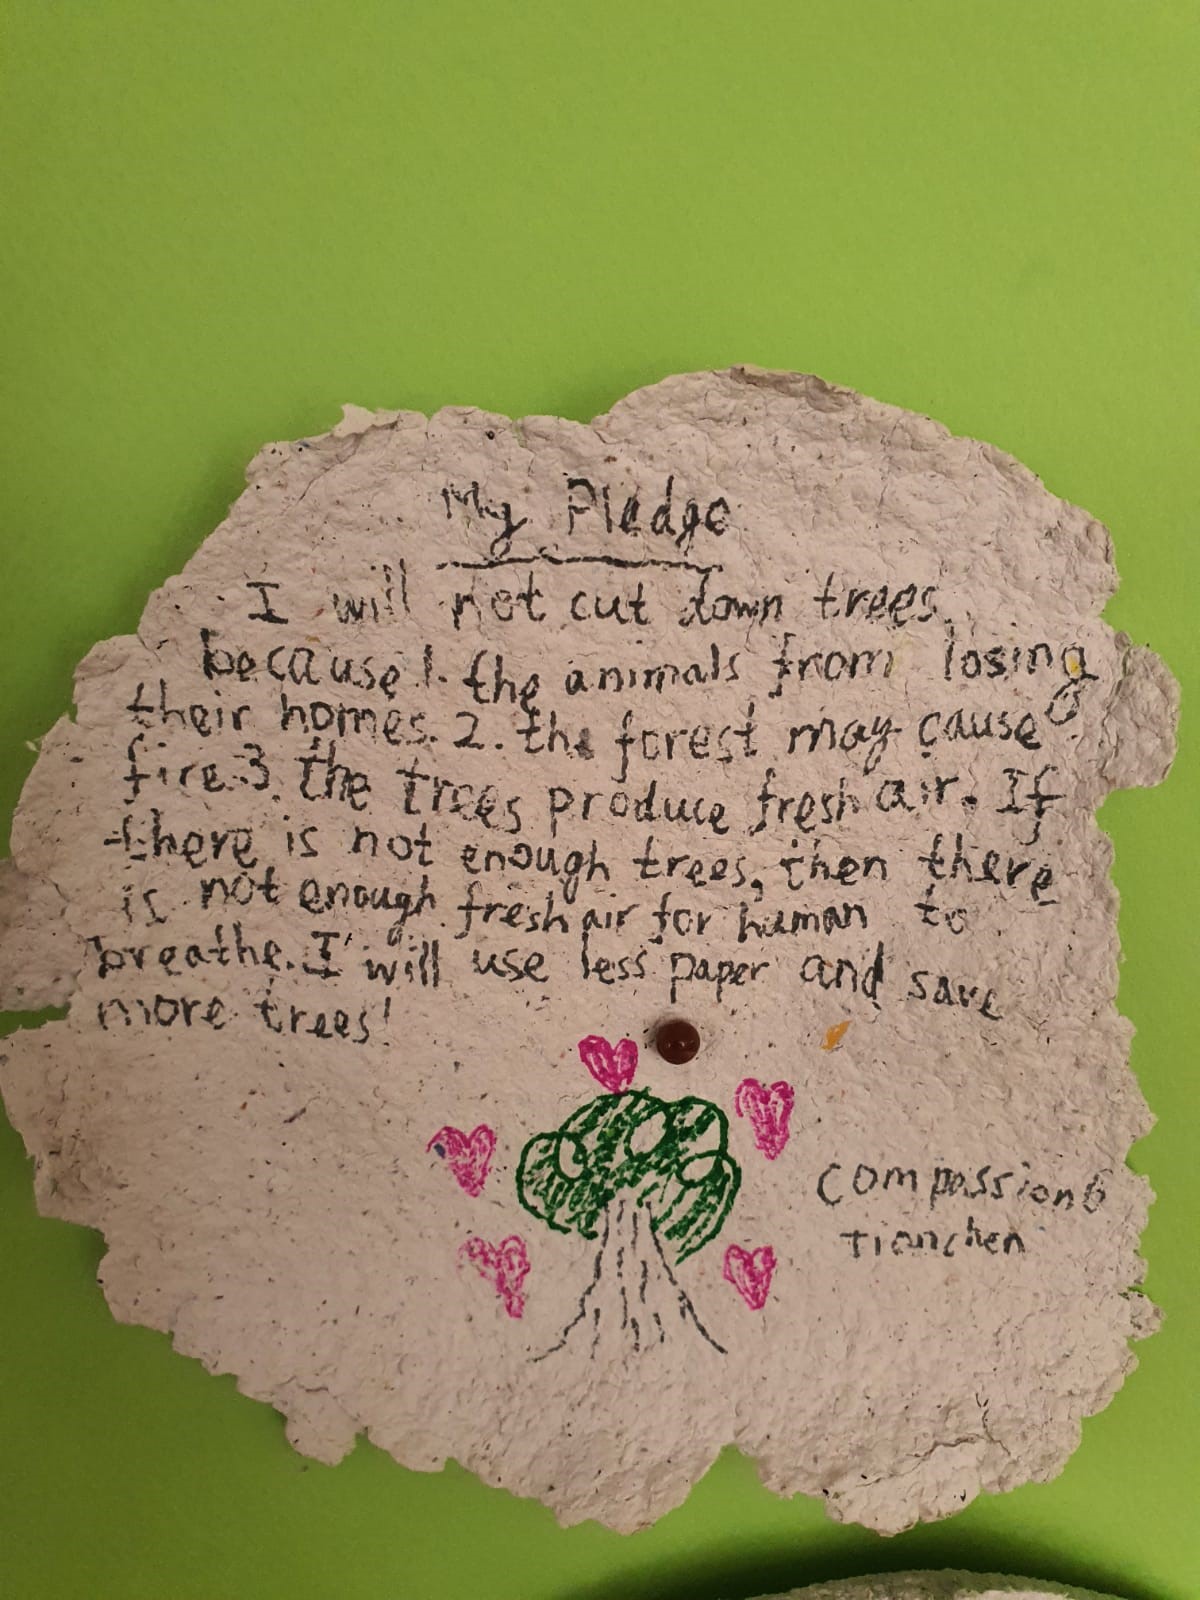 My Pledge
I will not cut down trees
because 1. the animals from losing
their homes. 2. the forest may cause
fire. 3. the trees produce fresh air. If
there is not enough trees, then there
is not enough fresh air for human to
breathe. I will use less paper and save
more trees!
Compassion6
Tianchen